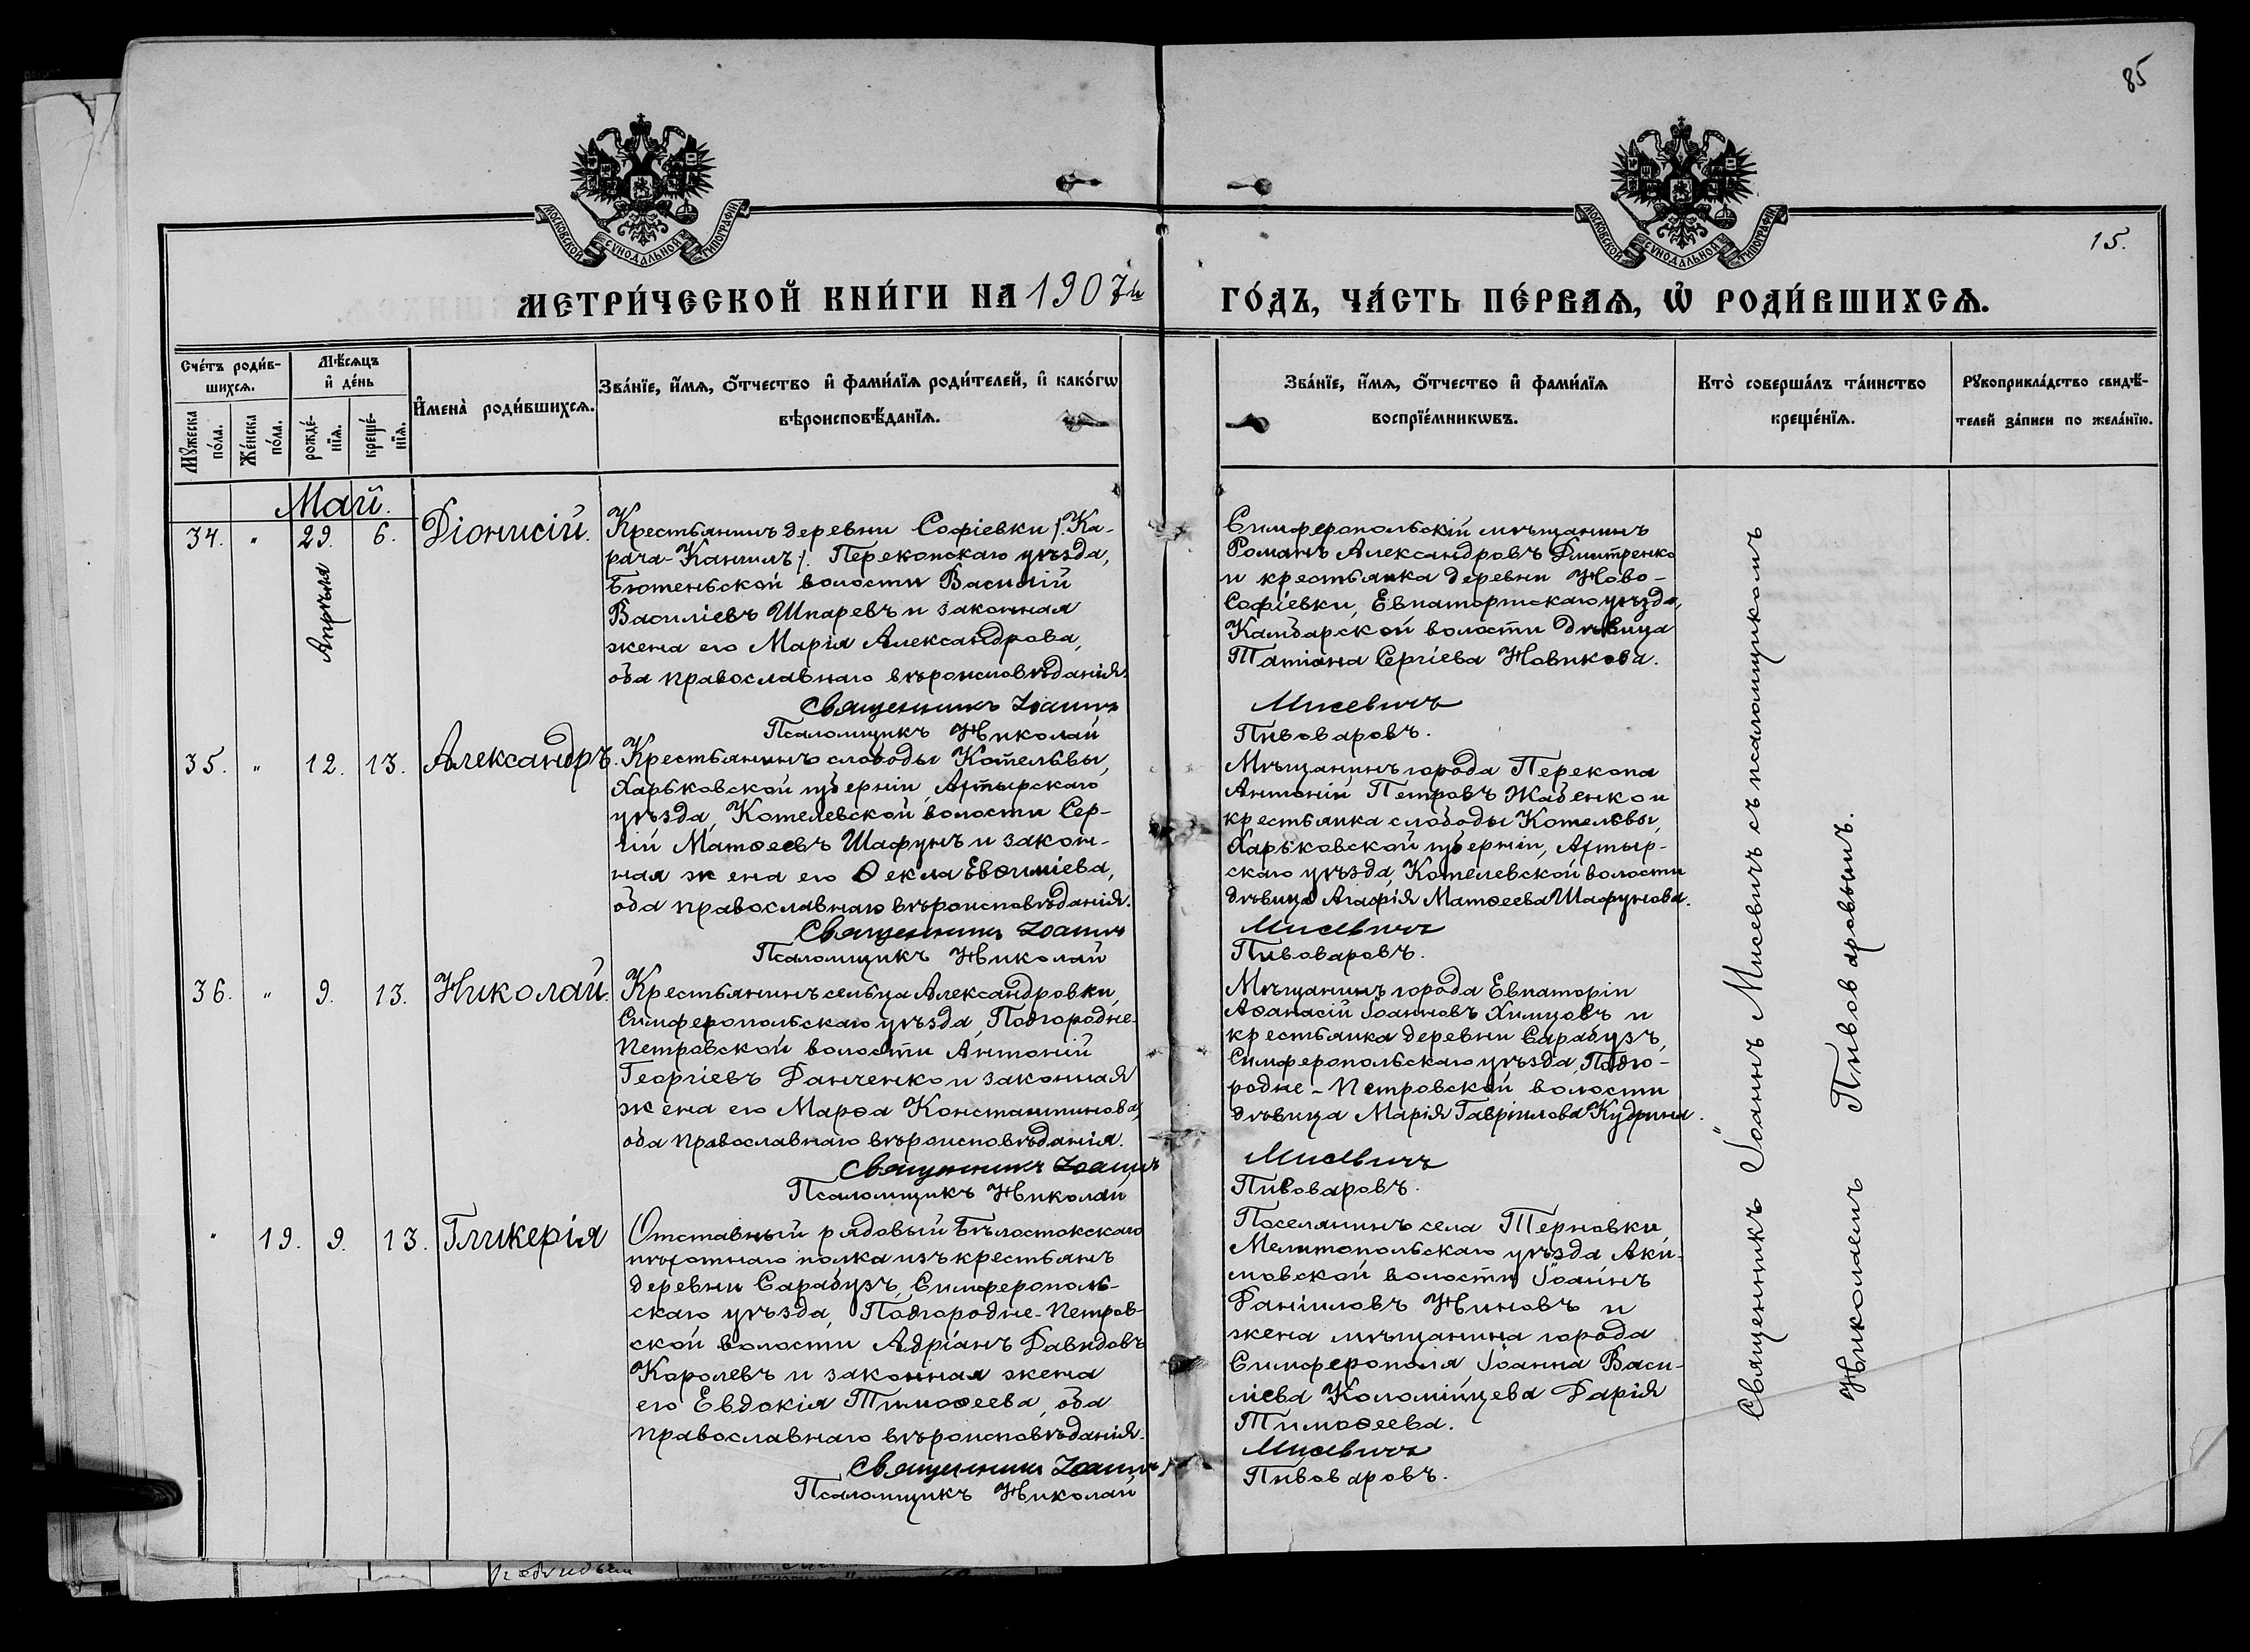 85
15.
МОСКОВСКОЙ СѴНОДАЛЬНОЙ ТИПОГРАФІИ
МОСКОВСКОЙ СѴНОДАЛЬНОЙ ТИПОГРАФІИ
МЕТРИ́ЧЕСКОЙ КНИ́ГИ НА 1907й ГО́ДЪ, ЧА́СТЬ ПЕ́РВАѦ, Ѡ҆ РОДИ́ВШИХСѦ.
Сче́тъ роди́в-
шихсѧ.
Мꙋ́жеска
по́ла.
Же́нска
по́ла.
Мѣ́сѧцъ
и҆ де́нь
рожде́-
нїѧ.
креще́-
нїѧ.
И҆мена̀ роди́вшихсѧ.
Зва́нїе, и҆́мѧ, ѻ҆́тчество и҆ фами́лїѧ роди́телей, и҆ како́гѡ
вѣроисповѣ́данїѧ.
Зва́нїе, и҆́мѧ, ѻ҆́тчество и҆ фами́лїѧ
воспрїе́мникѡвъ.
Кто̀ соверша́лъ та́инство
креще́нїѧ.
Рꙋкоприкла́дство свидѣ́-
телей за́писи по жела́нїю.
Май.
34. " 29. 6. Діонисій.
Апрѣля
Крестьянинъ деревни Софіевки /: Ка-
рача-Кангилъ :/. Перекопскаго уѣзда,
Бютеньской волости Василій
Василіевъ Шпаревъ и законная
жена его Марія Александрова,
оба православнаго вѣроисповѣданія.
Священникъ Іоаннъ
Псаломщикъ Николай
Симферопольскій мѣщанинъ
Романъ Александровъ Дмитренко
и крестьянка деревни Ново-
Софіевки, Евпаторійскаго уѣзда,
Камбарской волости дѣвица
Татіана Сергіева Новикова.
Мисевичъ
Пивоваровъ.
35. " 12. 13. Александръ.
Крестьянинъ слободы Котельвы,
Харьковской губерніи, Ахтырскаго
уѣзда, Котелевской волости Сер-
гій Матѳеевъ Шафунъ и закон-
ная жена его Ѳекла Евѳиміева,
оба православнаго вѣроисповѣданія.
Священникъ Іоаннъ
Псаломщикъ Николай
Мѣщанинъ города Перекопа
Антоній Петровъ Жабенко и
крестьянка слободы Котельвы,
Харьковской губерніи, Ахтыр-
скаго уѣзда, Котелевской волости
дѣвица Агафія Матѳеева Шафунова.
Мисевичъ
Пивоваровъ.
36. " 9. 13. Николай.
Крестьянинъ сельца Александровки,
Симферопольскаго уѣзда, Подгородне-
Петровской волости Антоній
Георгіевъ Данченко и законная
жена его Марѳа Константинова,
оба православнаго вѣроисповѣданія.
Священникъ Іоаннъ
Псаломщикъ Николай
Мѣщанинъ города Евпаторіи
Аѳанасій Іоанновъ Химцовъ и
крестьянка деревни Сарабузъ,
Симферопольскаго уѣзда, Подго-
родне-Петровской волости
дѣвица Марія Гавріилова Кудрина.
Мисевичъ
Пивоваровъ.
" 19. 9. 13. Гликерія
Отставный рядовый Бѣлостокскаго
пѣхотнаго полка изъ крестьянъ
деревни Сарабузъ, Симферополь-
скаго уѣзда, Подгородне-Петров-
ской волости Адріанъ Давидовъ
Королевъ и законная жена
его Евдокія Тимоѳеева, оба
православнаго вѣроисповѣданія.
Священникъ Іоаннъ
Псаломщикъ Николай
Поселянинъ села Терновки
Мелитопольскаго уѣзда Аки-
мовской волости Іоаннъ
Даніиловъ Ниновъ и
жена мѣщанина города
Симферополя, Іоанна Васи-
ліева Коломійцева Дарія
Тимоѳеева.
Мисевичъ
Пивоваровъ.
Священникъ Іоаннъ Мисевичъ съ псаломщикомъ
Николаемъ Пивоваровымъ.